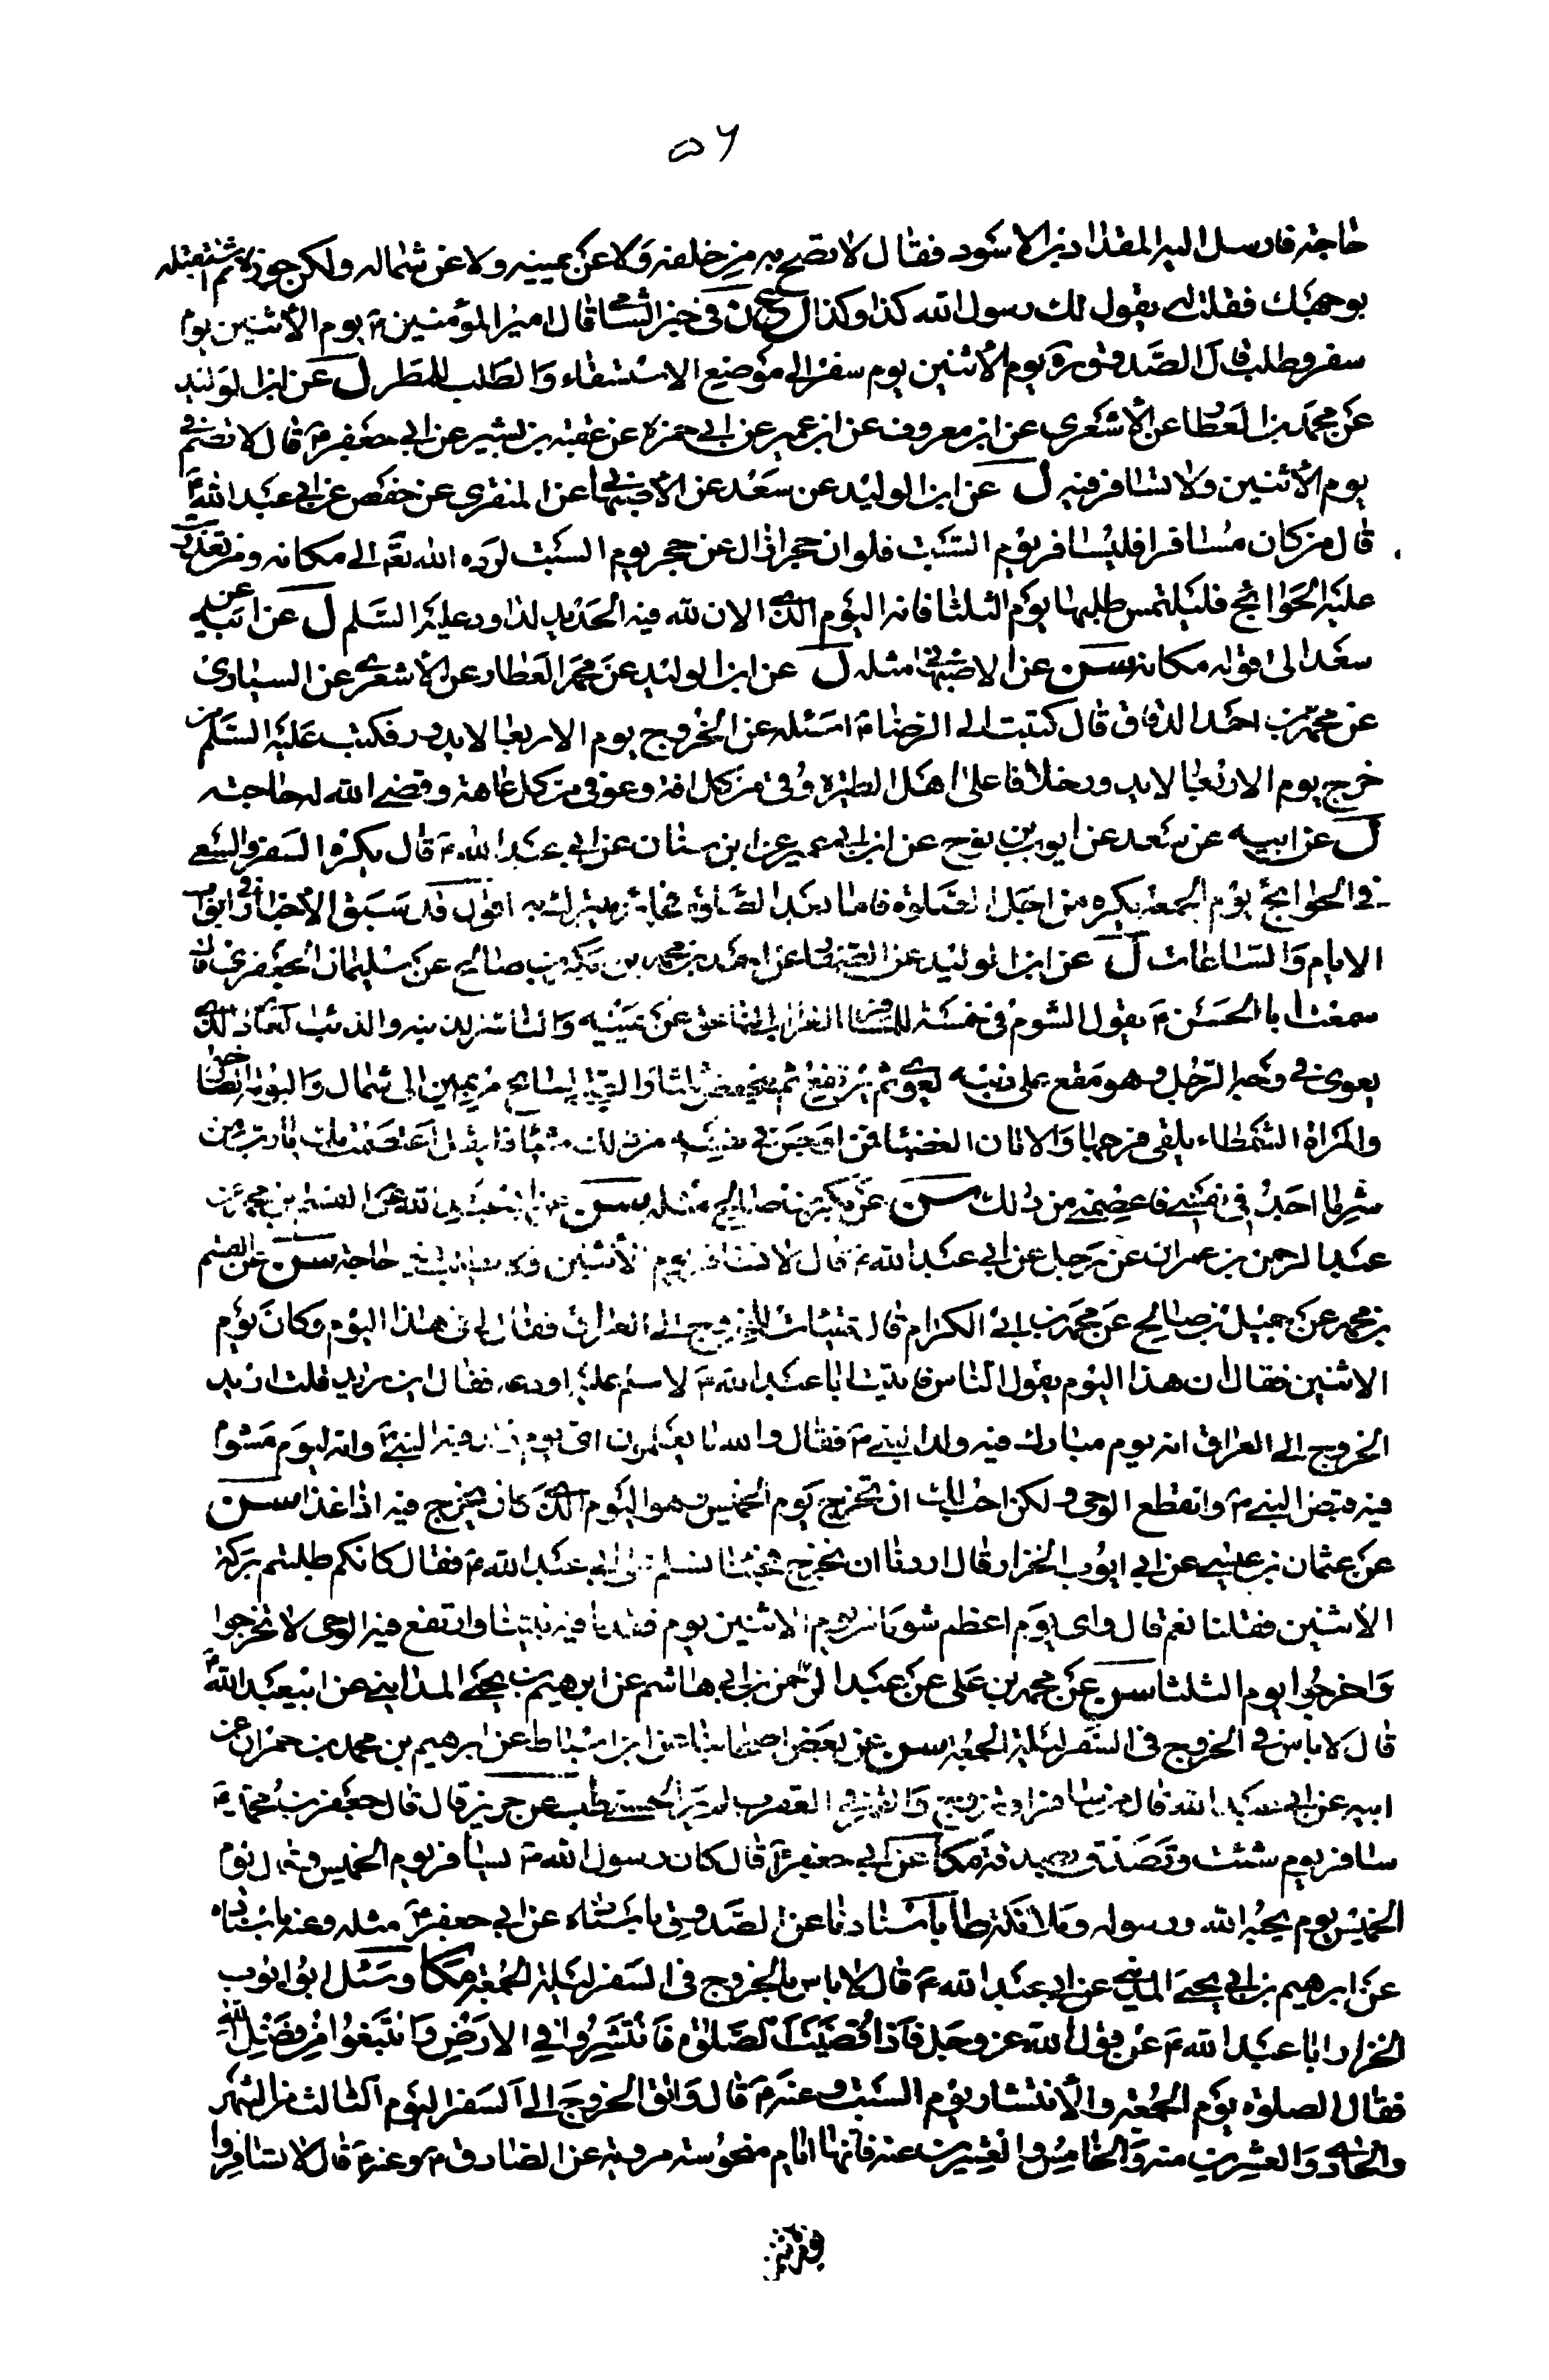 ٥٦
حاجته فارسل اليه المقداد بن الاسود فقال لا تصح به من خلفه ولا عن يمينه ولا عن شماله ولكن جزه ثم استقبله
بوجهك فقل له يقول لك رسول الله كذا وكذا ل ع ن في خبر الشامي قال امير المؤمنين ع يوم الاثنين يوم
سفر وطلب قال الصدوق ره يوم الاثنين يوم سفر الى موضع الاستسقاء والطلب للمطر ل عن ابن الوليد
عن محمد العطار عن الاشعري عن ابن معروف عن ابن عمير عن ابي حمزه عن عقبه بن بشير عن ابي جعفر ع قال لا تصم في
يوم الاثنين ولا تسافر فيه ل عن ابن الوليد عن سعد عن الاصبهاني عن المنقري عن حفص عن ابي عبد الله ع
قال من كان مسافرا فليسافر يوم السبت فلو ان حجرا زال عن حجر يوم السبت لرده الله تعالى مكانه ومن تعذرت
عليه الحوائج فليلتمس طلبها يوم الثلثا فانه اليوم الذي الان الله فيه الحديد لداود عليه السلم ل عن ابيه عن
سعد الى قوله مكانه سن عن الاصبهاني مثله ل عن ابن الوليد عن محمد العطار عن الاشعري عن السياري
عن محمد بن احمد الدقاق قال كتبت الى الرضا ع اسئله عن الخروج يوم الاربعا لا يدور فكتب عليه السلم من
خرج يوم الاربعا لا يدور خلافا على اهل الطيره وقي من كل افه وعوفي من كل عاهه وقضى الله له حاجته
ل عن ابيه عن سعد عن ايوب بن نوح عن ابن ابي عمير عن ابن سنان عن ابي عبد الله ع قال يكره السفر والسعي
في الحوائج يوم الجمعه بكره من اجل الصلوة فاما بعد الصلوة فجايز يتبرك به اقول قد سبق الاخبار في ابواب
الايام والساعات ل عن ابن الوليد عن الصفار عن احمد بن محمد عن بكر بن صالح عن سليمان الجعفري قال
سمعت ابا الحسن ع يقول الشوم في خمسة للمسافر الغراب الناعق عن يمينه والناشر لذنبه والذئب العاوي الذي
يعوي في وجه الرجل وهو مقع على ذنبه يعوي ثم يرتفع ثم ينخفض ثلاثا والظبي السانح من يمين الى شمال والبومه الصارخة
والمراة الشمطاء تلقى فرجها والاتان العضبا فمن اوجس في نفسه منهن شيئا فليقل اعتصمت بك يا رب من
شر ما اجد في نفسي فاعصمني من ذلك سن عن بكر بن صالح مثله سن عن عبد الله عن القسم بن محمد عن
عبد الرحمن بن عمران عن رجل عن ابي عبد الله ع قال لا تسافر يوم الاثنين ولا تطلب فيه حاجة سن عن القسم
بن محمد عن جميل بن صالح عن محمد بن ابي الكرام قال تهيات للخروج الى العراق فقال لي في هذا اليوم وكان يوم
الاثنين فقال ان هذا اليوم يقول الناس فاتيت ابا عبد الله ع لاسلم عليه اودعه فقال اين تريد قلت اريد
الخروج الى العراق انه يوم مبارك فيه ولد النبي ص فقال والله ما يعلمون اي يوم ولد فيه النبي ص وانه ليوم مشوم
فيه قبض النبي ص وانقطع الوحي ولكن احب لك ان تخرج يوم الخميس وهو اليوم الذي كان يخرج فيه اذا غزا سن
عن عثمان بن عيسى عن ابي ايوب الخزار قال اردنا ان نخرج فجئنا نسلم على ابي عبد الله ع فقال كانكم طلبتم بركة
الاثنين فقلنا نعم قال واي يوم اعظم شوما من يوم الاثنين يوم فقدنا فيه نبينا وارتفع فيه الوحي لا تخرجوا
واخرجوا يوم الثلثا سن عن محمد بن علي عن عبد الرحمن بن ابي هاشم عن ابرهيم بن يحيى المدايني عن ابيعبد الله ع
قال لا باس في الخروج في السفر ليلة الجمعة سن عن بعض اصحابنا عن ابن اسباط عن ابرهيم بن محمد بن حمران عن
ابيه عن ابي عبد الله قال من سافر او تزوج والقمر في العقرب لم ير الحسنى طب عن حريز قال قال جعفر بن محمد ع
سافر يوم شئت وتصدق بصدقة مكا عن ابي جعفر ع قال كان رسول الله ص يسافر يوم الخميس وقال يوم
الخميس يوم يحبه الله ورسوله وملائكته طا باسنادنا عن الصدوق باسناده عن ابي جعفر ع مثله وعنه باسناده
عن ابرهيم بن ابي يحيى المديني عن ابي عبد الله ع قال لا باس بالخروج في السفر ليلة الجمعة مكا وسئل ابو ايوب
الخزار ابا عبد الله ع عن قول الله عز وجل فاذا قضيت الصلوة فانتشروا في الارض وابتغوا من فضل الله
فقال الصلوة يوم الجمعة والانتشار يوم السبت وعنه ع قال واتق الخروج الى السفر اليوم الثالث من الشهر
والحادي والعشرين منه والخامس والعشرين منه فانها ايام منحوسة مروية عن الصادق ع وعنه ع قال لا تسافروا